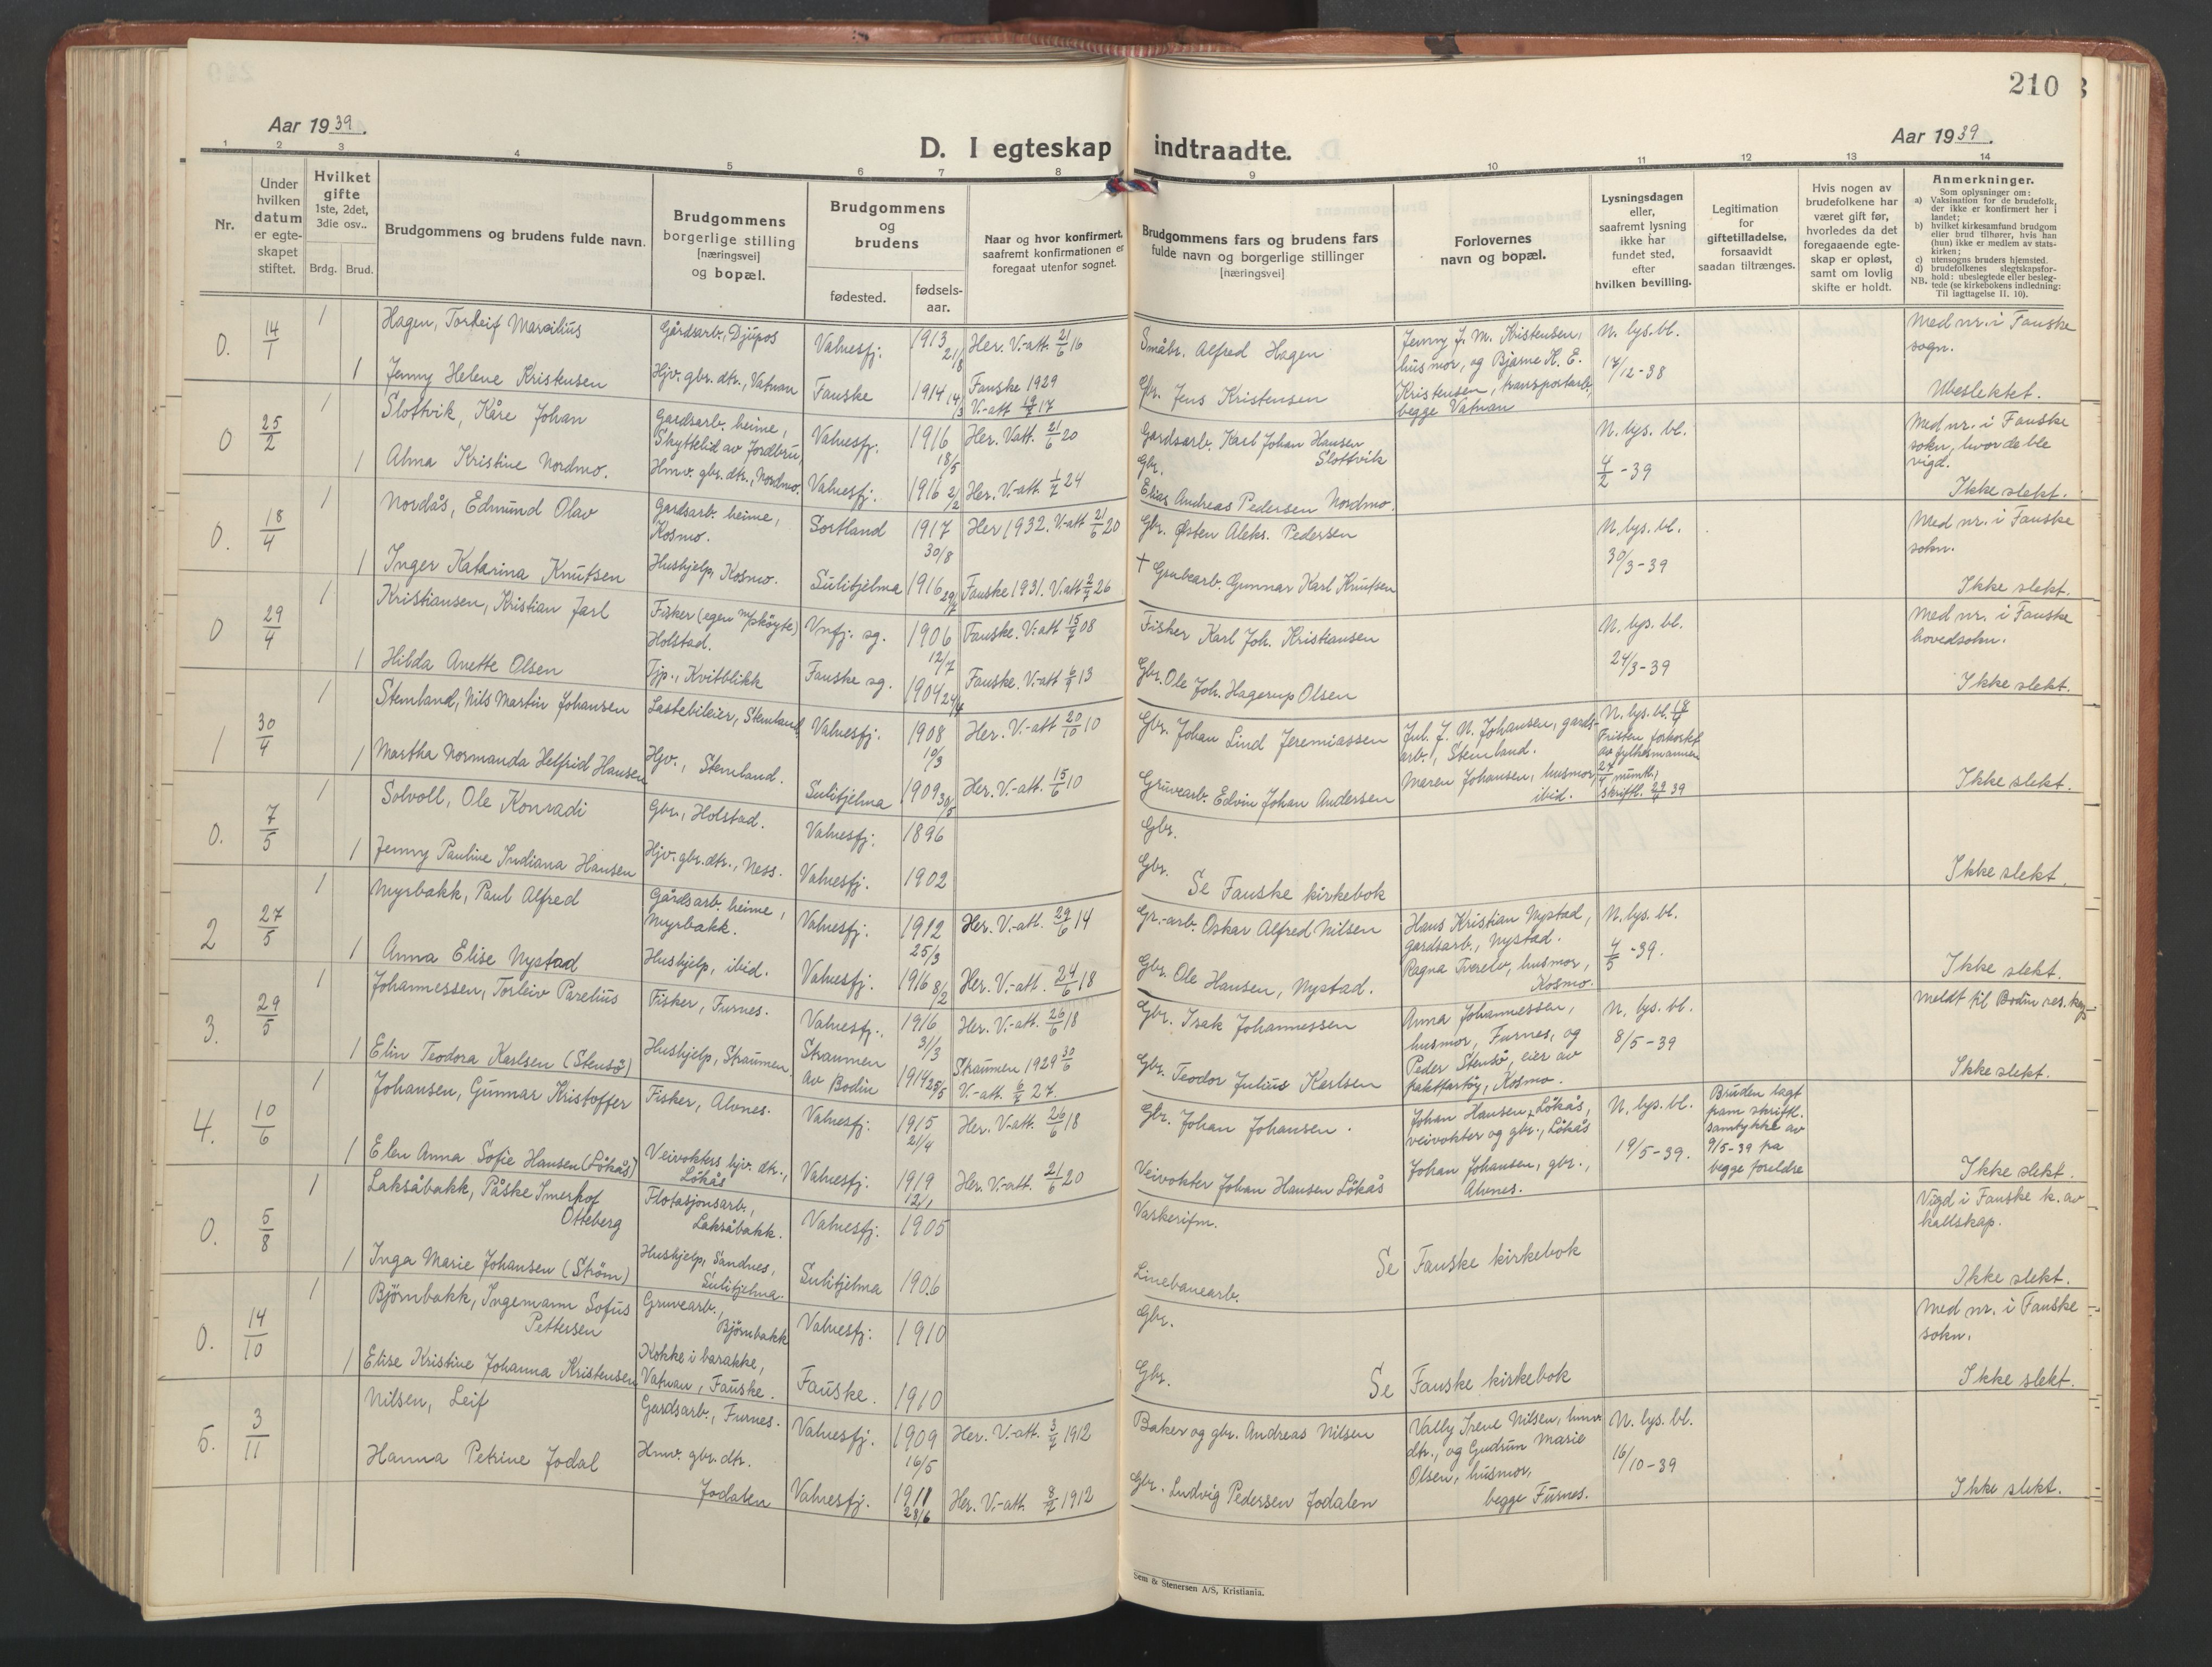 210
Aar 1939.
D. I egteskap indtraadte.
Aar 1939.
1 2 3 4 5 6 7 8 9 10 11 12 13 14
Nr.
Under hvilken datum er egte-skapet stiftet.
Hvilket gifte 1ste, 2det, 3die osv..
Brdg. Brud.
Brudgommens og brudens fulde navn.
Brudgommens borgerlige stilling [næringsvei] og bopæl.
Brudgommens og brudens
fødested.
fødsels-aar.
Naar og hvor konfirmert, saafremt konfirmationen er foregaat utenfor sognet.
Brudgommens fars og brudens fars fulde navn og borgerlige stillinger [næringsvei]
Forlovernes navn og bopæl.
Lysningsdagen eller, saafremt lysning ikke har fundet sted, efter hvilken bevilling.
Legitimation for giftetilladelse, forsaavidt saadan tiltrænges.
Hvis nogen av brudefolkene har været gift før, hvorledes da det foregaaende egte-skap er opløst, samt om lovlig skifte er holdt.
Anmerkninger.
Som oplysninger om:
a) Vaksination for de brudefolk, der ikke er konfirmert her i landet;
b) hvilket kirkesamfund brudgom eller brud tilhører, hvis han (hun) ikke er medlem av stats-kirken;
c) utensogns bruders hjemsted.
d) brudefolkenes slegtskapsfor-hold: ubeslegtede eller besleg-tede (se kirkebokens indledning: Til iagttagelse II. 10).
NB.
0. 14/1 1 Hagen, Torleif Marsilius Gårdsarb., Djupos Valnesfj. 1913 21/8 Her. V.-att. 21/6 16 Småbr. Alfred Hagen Jenny J. M. Kristensen, husmor, og Bjarne K. E. Kristensen, transportarb., begge Vatnan N. lys. bl. 17/12-38 Med nr. i Fauske sogn.
1 Jenny Helene Kristensen Hjv. gbr. dtr., Vatnan Fauske 1914 14/3 Fauske 1929 V.-att 19/7 17 Gbr. Jens Kristensen Ubeslektet.
0 25/2 1 Slottvik, Kåre Johan Gardsarb. heime, Skyttelid av Jordbru, Valnesfj. 1916 18/5 Her. Vatt. 21/6 20 Gardsarb. Karl Johan Hansen Slottvik N. lys. bl. 4/2-39 Med nr. i Fauske sokn, hvor de ble vigd.
1 Alma Kristine Nordmo. Hmv. gbr. dtr., Nordmo. Valnesfj. 1916 2/2 Her. V.-att. 1/7 24 Gbr. Elias Andreas Pedersen Nordmo. Ikke slekt.
0. 18/4 1 Nordås, Edmund Olav Gardsarb. heime, Kosmo. Sortland 1917 30/8 Her 1932. V.-att 21/6 20 Gbr. Østen Aleks. Pedersen N. lys. bl. 30/3-39 Med nr. i Fauske sokn.
1 Inger Katarina Knutsen Hushjelp, Kosmo. Sulitjelma 1916 29/7 Fauske 1931. V.att 2/7 26 † Grubearb. Gunnar Karl Knutsen Ikke slekt.
0 29/4 1 Kristiansen, Kristian Jarl Fisker (egen m/skøyte) Holstad. Vnfj. sg. 1906 12/7 Fauske. V.-att 15/7 08 Fisker Karl Joh. Kristiansen N. lys. bl. 24/3-39 Med nr. i Fauske hovedsokn.
1 Hilda Anette Olsen Tjp., Kvitblikk Fauske sg. 1904 24/4 Fauske. V.-att 6/9 13 Gbr. Ole Joh. Hagerup Olsen Ikke slekt.
1 30/4 1 Stemland, Nils Martin Johansen Lastebileier, Stemland Valnesfj. 1908 10/3 Her. V.-att 20/10 10 Gbr. Johan Lind Jeremiassen Jul. J. N. Johansen, gards-arb., Stemland. Maren Johansen, husmor, ibid. N. lys. bl. 18/4 Fristen forkortet av fylkesmannen 27/4 muntl., skriftl. 29/4 39
1 Martha Normanda Helfrid Hansen Hjv., Stemland. Sulitjelma 1909 30/5 Her. V.-att. 15/6 10 Gruvearb. Edvin Johan Andersen Ikke slekt.
0. 7/5 1 Solvoll, Ole Konradi Gbr., Holstad. Valnesfj. 1896 Gbr.
1 Jenny Pauline Indiana Hansen Hjv. gbr. dtr., Ness. Valnesfj. 1902 Gbr. Se Fauske kirkebok Ikke slekt.
2 27/5 1 Myrbakk, Paul Alfred Gårdsarb. heime, Myrbakk. Valnesfj. 1912 25/3 Her. V.-att. 29/6 14 Gr.-arb. Oskar Alfred Nilsen Hans Kristian Nystad, gardsarb., Nystad. Ragna Tverelv, husmor, Kosmo. N. lys. bl. 4/5-39.
1 Anna Elise Nystad Hushjelp, ibid. Valnesfj. 1916 8/2 Her. V.-att. 24/6 18 Gbr. Ole Hansen, Nystad. Ikke slekt.
3. 29/5 1 Johannessen, Torleiv Parelius Fisker, Furnes. Valnesfj. 1916 31/3 Her. V.-att. 26/6 18 Gbr. Isak Johannessen Anna Johannessen, husmor, Furnes, og Peder Stensö, eier av fraktfartöy, Kosmo. N. lys. bl. 8/5-39 Meldt til Bodin res. kap
1 Elin Teodora Karlsen (Stensö) Hushjelp, Straumen. Straumen av Bodin 1914 25/5 Straumen 1929 30/6 V.-att. 6/7 27. Gbr. Teodor Julius Karlsen Ikke slekt.
4. 10/6 1 Johansen, Gunnar Kristoffer Fisker, Alvnes. Valnesfj. 1915 21/4 Her. V-att. 26/6 18 Gbr. Johan Johansen. Johan Hansen Lökås, veivokter og gbr., Lökås Johan Johansen, gbr., Alvnes. N. lys. bl. 19/5-39. Bruden lagt fram skriftl. samtykke av 9/5-39 fra begge foreldre
1 Elen Anna Sofie Hansen (Lökås) Veivokters hjv. dtr., Lökås Valnesfj. 1919 12/1 Her. V.-att. 21/6 20 Veivokter Johan Hansen Lökås Ikke slekt.
0. 5/8 1 Laksåbakk, Påske Imerhof Otteberg Flotasjonsarb., Laksåbakk. Valnesfj. 1905 Vaskerifm. Vigd i Fauske k. av kallskap.
1 Inga Marie Johansen (Ström) Hushjelp, Sandnes, Sulitjelma. Sulitjelma 1906 Linebanearb. Se Fauske kirkebok Ikke slekt.
0. 14/10 1 Björnbakk, Ingemann Sofus Pettersen Gruvearb., Björnbakk Valnesfj. 1910 Gbr. Med nr. i Fauske sokn.
1 Elise Kristine Johanna Kristensen Kokke i barakke, Vatnan, Fauske. Fauske. 1910 Gbr. Se Fauske kirkebok Ikke slekt.
5. 3/11 Nilsen, Leif Gardsarb., Furnes. Valnesfj. 1909 16/5 Her. V.-att. 3/7 1912 Baker og gbr. Andreas Nilsen Vally Irene Nilsen, hmv dtr., og Gudrun Marie Olsen, husmor, begge Furnes. N. lys. bl. 16/10-39
Hanna Petrine Jodal Hmv. gbr. dtr. Jodalen Valnesfj. 1911 28/6 Her. V.-att. 8/7 1912 Gbr. Ludvig Pedersen Jodalen Ikke slekt.
Sem & Stenersen A/S, Kristiania.